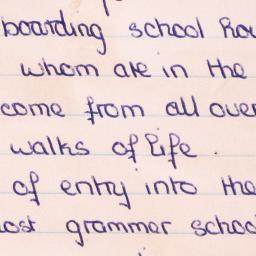 boarding school
whom are in the
come from all over
walks of life.
of entry into the
grammer